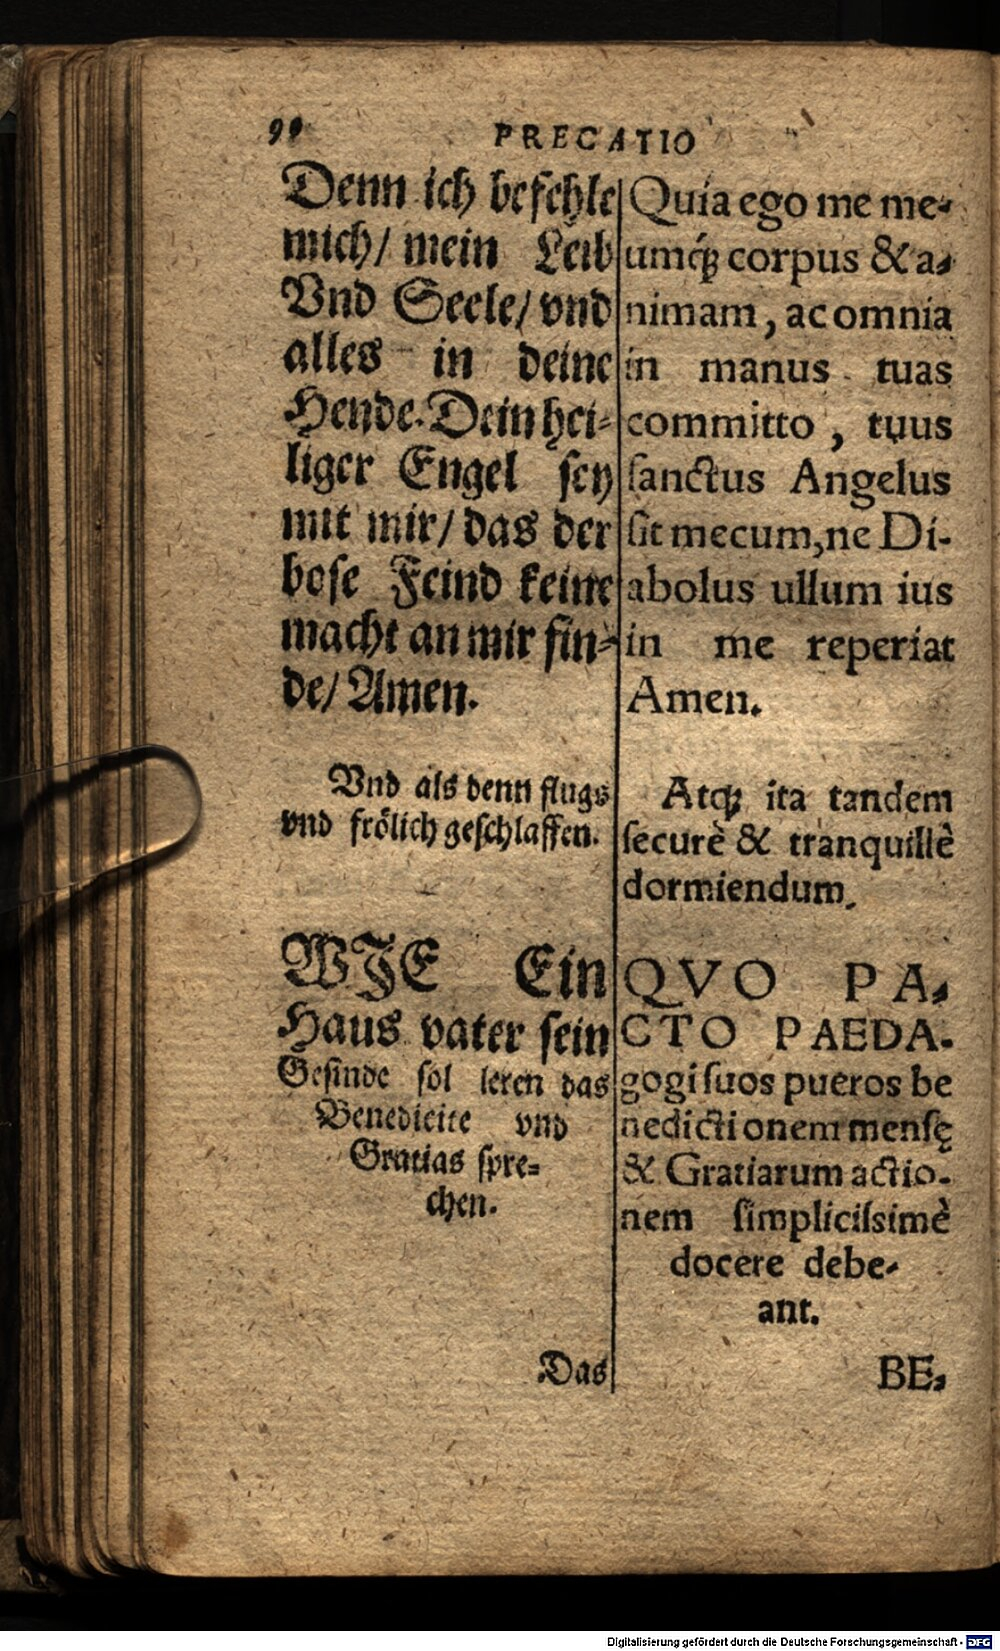 PRECATIO
Denn ich befehle
mich/ mein Leib
Vnd Seele/ vnd
alles in deine
Hende. Dein hei-
liger Engel sey
mit mir/ das der
bose Feind keine
macht an mir fin-
de/ Amen.
Vnd als denn flugs
vnd frölich geschlaffen.
WJE Ein
Haus vater sein
Gesinde sol leren das
Benedicite vnd
Gratias spre-
chen.
Das
Quia ego me me-
umq́ꝫ corpus & a-
nimam, ac omnia
in manus tuas
committo, tuus
sanctus Angelus
sit mecum, ne Di-
abolus ullum ius
in me reperiat
Amen.
Atqꝫ ita tandem
securè & tranquillè
dormiendum.
QVO PA-
CTO PAEDA-
gogi suos pueros be
nedictionem mensę
& Gratiarum actio-
nem simplicissimè
docere debe-
ant.
BE-
Digitalisierung gefördert durch die Deutsche Forschungsgemeinschaft - DFG